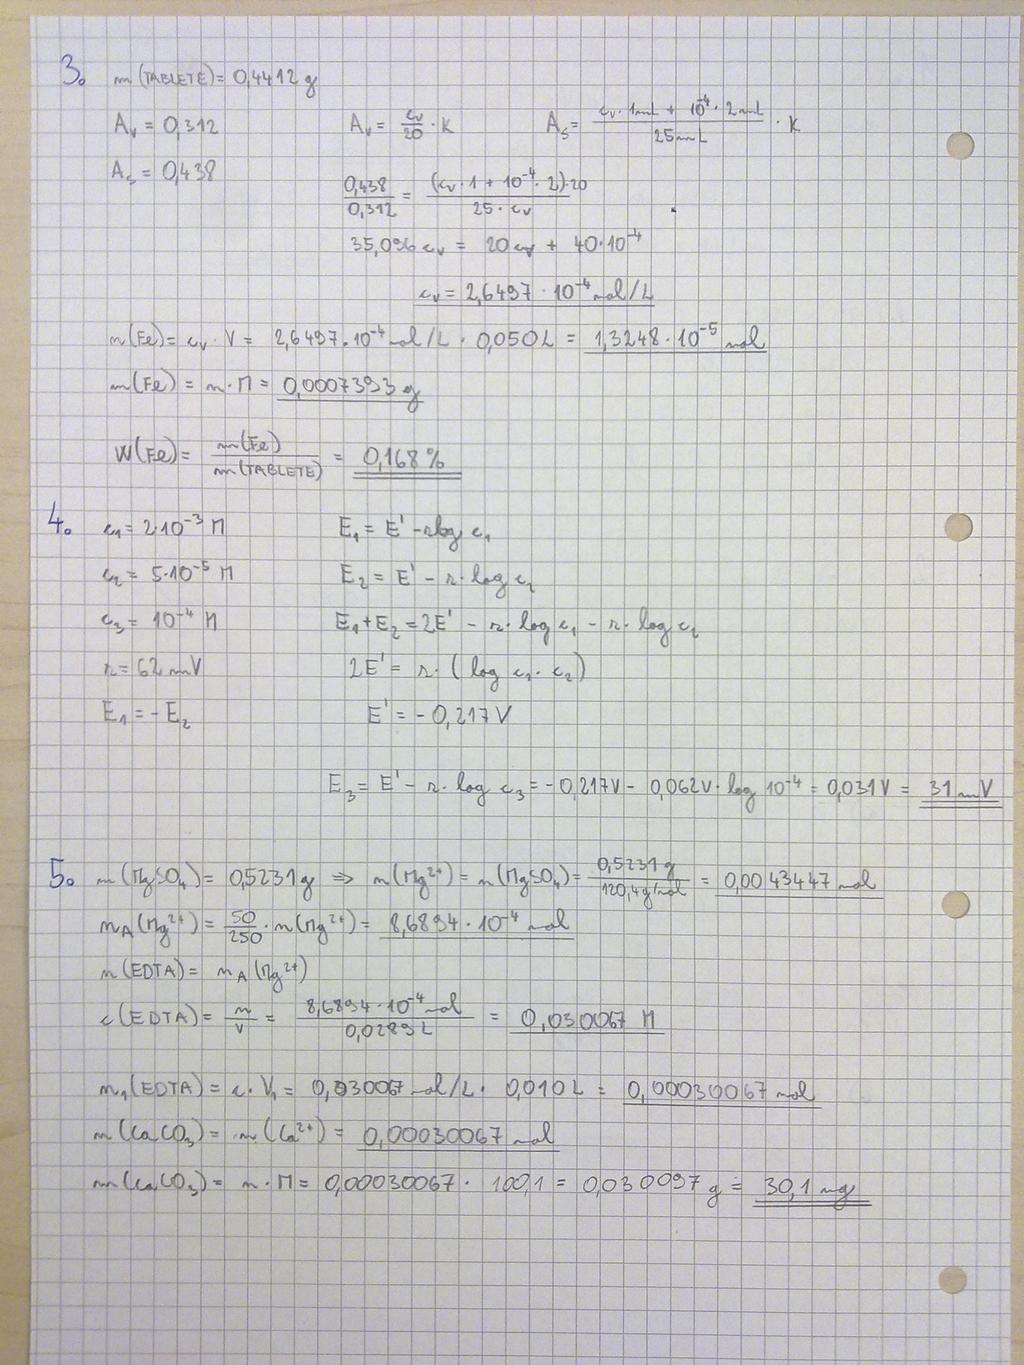 3. m(TABLETE) = 0,4412 g
Av = 0,312 Av = cv/20 · K As = (cv · 1mL + 10⁻⁴ · 2mL)/25mL · K
As = 0,438
0,438/0,312 = (cv · 1 + 10⁻⁴ · 2) · 20/25 · cv
35,096 cv = 20 cv + 40 · 10⁻⁴
cv = 2,6497 · 10⁻⁴ mol/L
n(Fe) = cv · V = 2,6497 · 10⁻⁴ mol/L · 0,050 L = 1,3248 · 10⁻⁵ mol
m(Fe) = n · M = 0,0007393 g
W(Fe) = m(Fe)/m(TABLETE) = 0,168 %
4. c₁ = 2·10⁻³ M E₁ = E' - r log c₁
c₂ = 5·10⁻⁵ M E₂ = E' - r · log c₂
c₃ = 10⁻⁴ M E₁ + E₂ = 2E' - r · log c₁ - r · log c₂
r = 62 mV 2E' = r · (log c₁ · c₂)
E₁ = - E₂ E' = - 0,217 V
E₃ = E' - r · log c₃ = - 0,217V - 0,062V · log 10⁻⁴ = 0,031 V = 31 mV
5. m(MgSO₄) = 0,5231 g ⇒ n(Mg²⁺) = n(MgSO₄) = 0,5231 g/120,4 g/mol = 0,0043447 mol
nA(Mg²⁺) = 50/250 · n(Mg²⁺) = 8,6894 · 10⁻⁴ mol
n(EDTA) = nA(Mg²⁺)
c(EDTA) = n/V = 8,6894 · 10⁻⁴ mol/0,0289 L = 0,030067 M
n₁(EDTA) = c · V₁ = 0,030067 mol/L · 0,010 L = 0,00030067 mol
n(CaCO₃) = n(Ca²⁺) = 0,00030067 mol
m(CaCO₃) = n · M = 0,00030067 · 100,1 = 0,030097 g = 30,1 mg